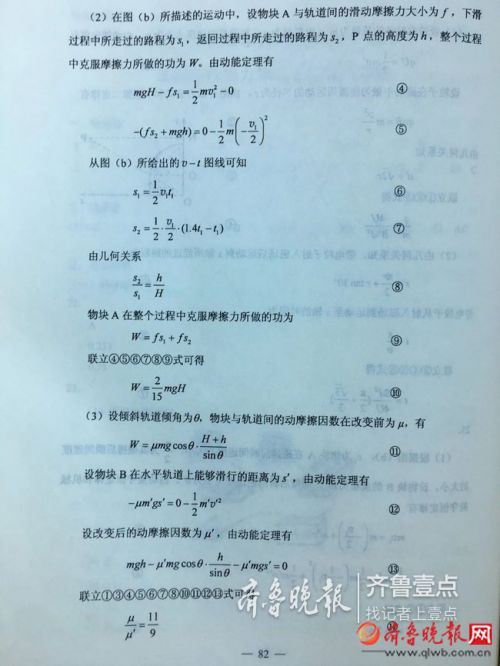 (2)在图(b)所描述的运动中,设物块A与轨道间的滑动摩擦力大小为f,下滑
过程中所走过的路程为s₁,返回过程中所走过的路程为s₂,P点的高度为h,整个过程
中克服摩擦力所做的功为W。由动能定理有
mgH − fs₁ = 1/2 mv₁² − 0 ④
−(fs₂ + mgh) = 0 − 1/2 m(−v₁/2)² ⑤
从图(b)所给出的v−t图线可知
s₁ = 1/2 v₁t₁ ⑥
s₂ = 1/2 · v₁/2 · (1.4t₁ − t₁) ⑦
由几何关系
s₂/s₁ = h/H ⑧
物块A在整个过程中克服摩擦力所做的功为
W = fs₁ + fs₂ ⑨
联立④⑤⑥⑦⑧⑨式可得
W = 2/15 mgH ⑩
(3)设倾斜轨道倾角为θ,物块与轨道间的动摩擦因数在改变前为μ,有
W = μmg cosθ · (H + h)/sinθ ⑪
设物块B在水平轨道上能够滑行的距离为s′,由动能定理有
−μm′gs′ = 0 − 1/2 m′v′² ⑫
设改变后的动摩擦因数为μ′,由动能定理有
mgh − μ′mg cosθ · h/sinθ − μ′mgs′ = 0 ⑬
联立①③④⑤⑥⑦⑧⑨⑩⑪⑫⑬式可得
μ/μ′ = 11/9
— 82 —
齐鲁晚报 齐鲁壹点
找记者上壹点
齐鲁晚报网
www.qlwb.com.cn